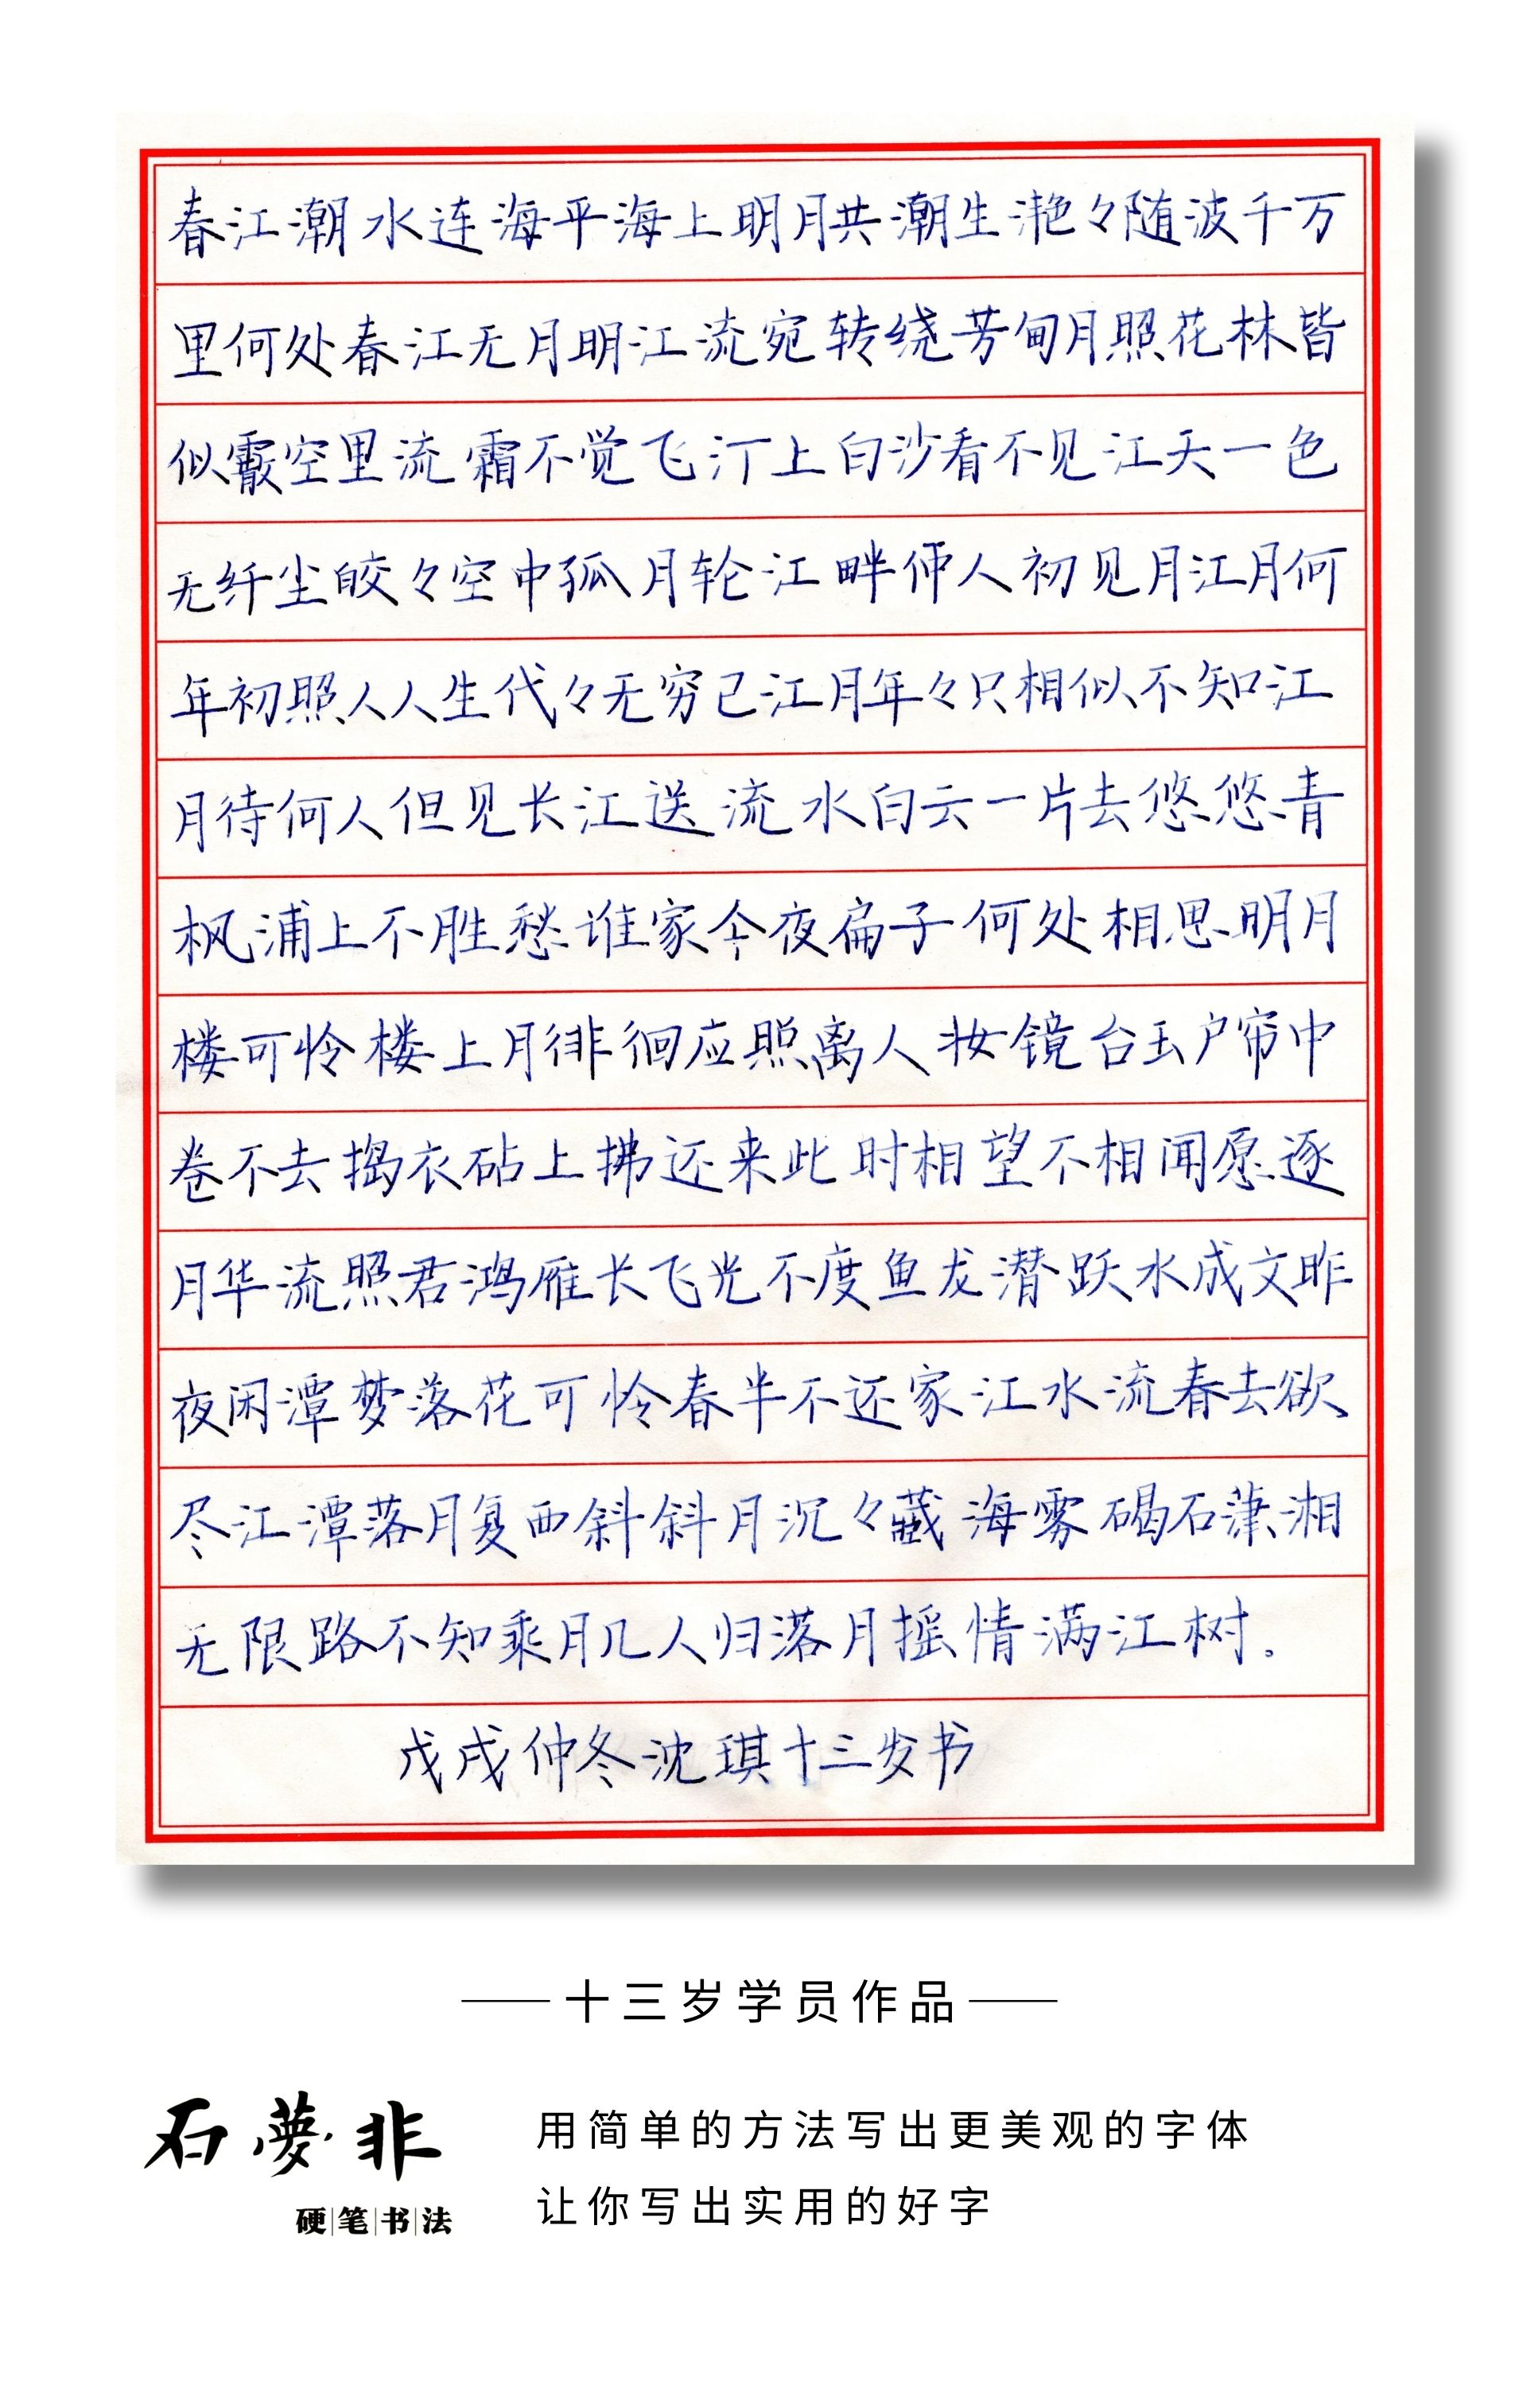 春江潮水连海平海上明月共潮生滟々随波千万
里何处春江无月明江流宛转绕芳甸月照花林皆
似霰空里流霜不觉飞汀上白沙看不见江天一色
无纤尘皎々空中孤月轮江畔何人初见月江月何
年初照人人生代々无穷已江月年々只相似不知江
月待何人但见长江送流水白云一片去悠悠青
枫浦上不胜愁谁家今夜扁子何处相思明月
楼可怜楼上月徘徊应照离人妆镜台玉户帘中
卷不去捣衣砧上拂还来此时相望不相闻愿逐
月华流照君鸿雁长飞光不度鱼龙潜跃水成文昨
夜闲潭梦落花可怜春半不还家江水流春去欲
尽江潭落月复西斜斜月沉々藏海雾碣石潇湘
无限路不知乘月几人归落月摇情满江树。
戊戌仲冬沈琪十三岁书
十三岁学员作品
石夢非
硬笔书法
用简单的方法写出更美观的字体
让你写出实用的好字